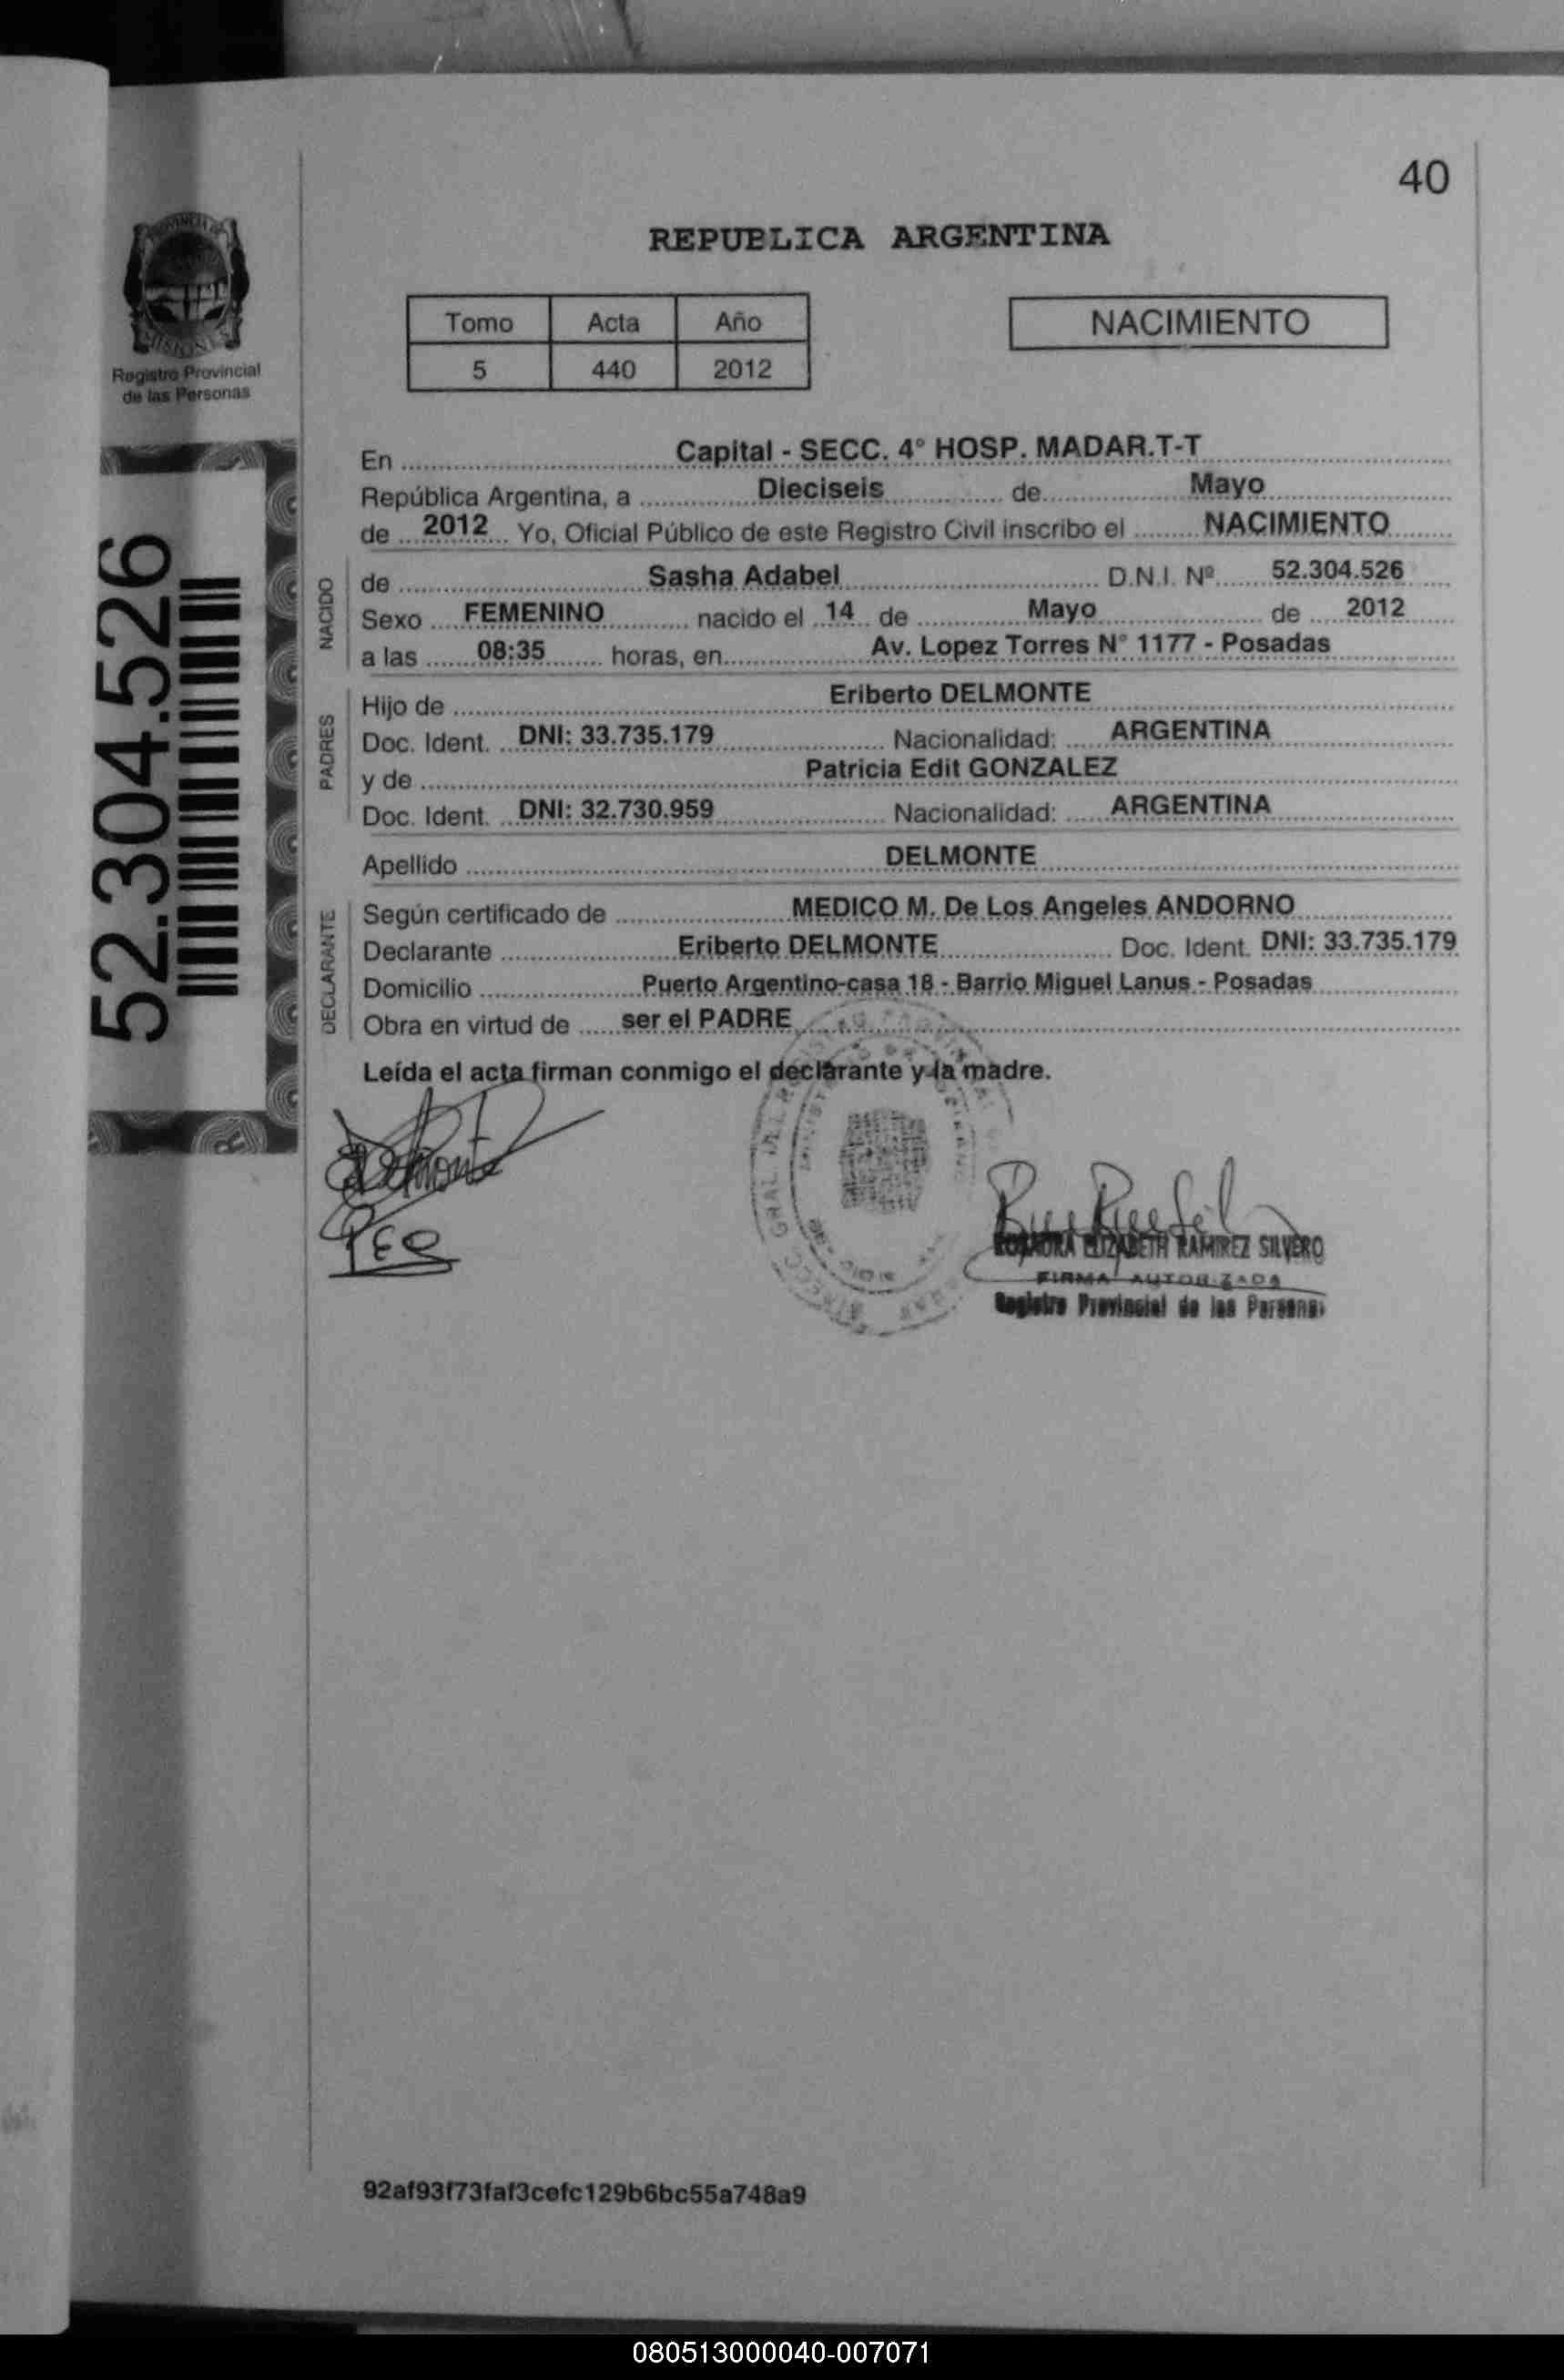 40
REPUBLICA ARGENTINA
Tomo Acta Año
5 440 2012
NACIMIENTO
Registro Provincial
de las Personas
52.304.526
En Capital - SECC. 4° HOSP. MADAR.T-T
República Argentina, a Dieciseis de Mayo
de 2012 Yo, Oficial Público de este Registro Civil inscribo el NACIMIENTO
NACIDO
de Sasha Adabel D.N.I. Nº 52.304.526
Sexo FEMENINO nacido el 14 de Mayo de 2012
a las 08:35 horas, en Av. Lopez Torres N° 1177 - Posadas
PADRES
Hijo de Eriberto DELMONTE
Doc. Ident. DNI: 33.735.179 Nacionalidad: ARGENTINA
y de Patricia Edit GONZALEZ
Doc. Ident. DNI: 32.730.959 Nacionalidad: ARGENTINA
Apellido DELMONTE
DECLARANTE
Según certificado de MEDICO M. De Los Angeles ANDORNO
Declarante Eriberto DELMONTE Doc. Ident. DNI: 33.735.179
Domicilio Puerto Argentino-casa 18 - Barrio Miguel Lanus - Posadas
Obra en virtud de ser el PADRE
Leída el acta firman conmigo el declarante y la madre.
ELIZABETH RAMIREZ SILVERO
FIRMA AUTORIZADA
Registro Provincial de las Personas
92af93f73faf3cefc129b6bc55a748a9
080513000040-007071